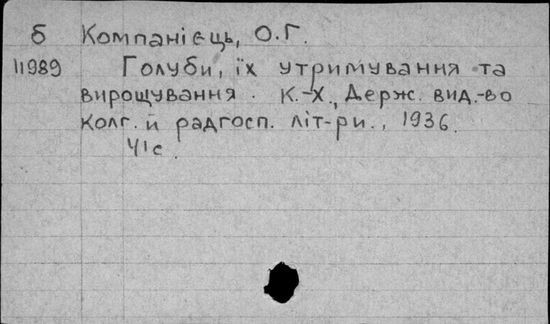 б Компанієць, О.Г.
11989 Голуби, їх утримування та
вирощування. К.-Х., Держ. вид.-во
колг. й радгосп. літ-ри., 1936.
41с.